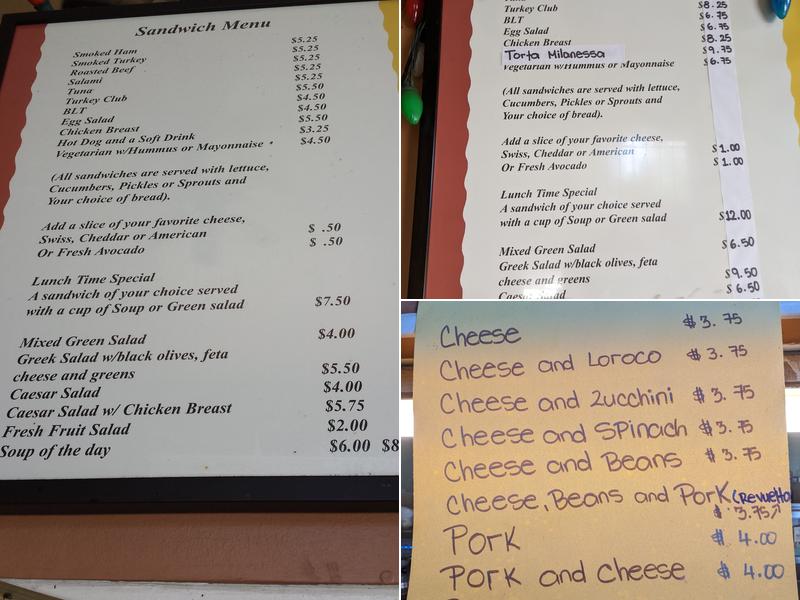 Sandwich Menu
Smoked Ham $5.25
Smoked Turkey $5.25
Roasted Beef $5.25
Salami $5.25
Tuna $5.25
Turkey Club $5.50
BLT $4.50
Egg Salad $4.50
Chicken Breast $5.50
Hot Dog and a Soft Drink $3.25
Vegetarian w/Hummus or Mayonnaise $4.50
(All sandwiches are served with lettuce,
Cucumbers, Pickles or Sprouts and
Your choice of bread).
Add a slice of your favorite cheese,
Swiss, Cheddar or American $ .50
Or Fresh Avocado $ .50
Lunch Time Special
A sandwich of your choice served
with a cup of Soup or Green salad $7.50
Mixed Green Salad $4.00
Greek Salad w/black olives, feta
cheese and greens $5.50
Caesar Salad $4.00
Caesar Salad w/ Chicken Breast $5.75
Fresh Fruit Salad $2.00
Soup of the day $6.00 $8
Turkey Club $8.25
BLT $6.75
Egg Salad $6.75
Chicken Breast $8.25
Torta Milanessa $9.75
Vegetarian w/Hummus or Mayonnaise $6.75
(All sandwiches are served with lettuce,
Cucumbers, Pickles or Sprouts and
Your choice of bread).
Add a slice of your favorite cheese,
Swiss, Cheddar or American $1.00
Or Fresh Avocado $1.00
Lunch Time Special
A sandwich of your choice served
with a cup of Soup or Green salad $12.00
Mixed Green Salad $6.50
Greek Salad w/black olives, feta
cheese and greens $9.50
Caesar Salad $6.50
Cheese $3.75
Cheese and Loroco $3.75
Cheese and Zucchini $3.75
Cheese and Spinach $3.75
Cheese and Beans $3.75
Cheese, Beans and Pork (Revuelta
$3.75
Pork $4.00
Pork and Cheese $4.00